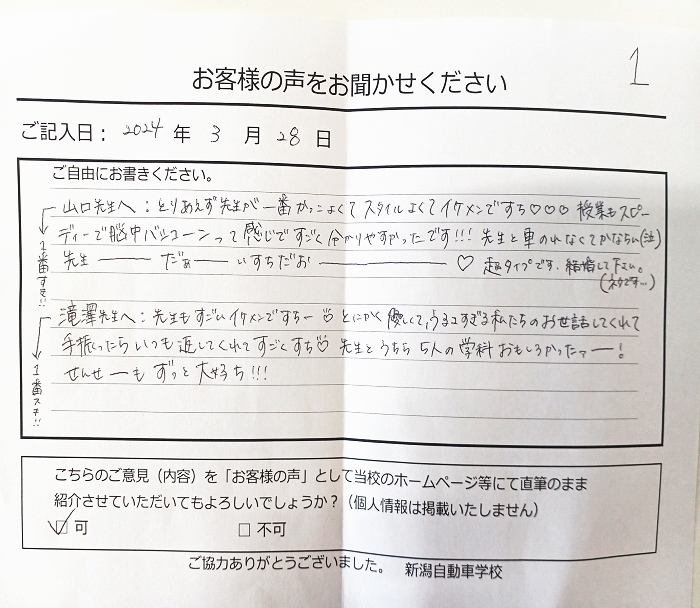 1
お客様の声をお聞かせください
ご記入日： 2024 年 3 月 28 日
ご自由にお書きください。
山口先生へ：とりあえず先生が一番かっこよくてスタイルよくてイケメンですち♡♡♡ 授業もスピー
ディーで脳中バシコーンって感じですごく分かりやすかったです!!! 先生と車のれなくてかなしい(泣)
先生――だぁ――いすちだお――♡ 超タイプです、結婚して下さい。
(ネタです…)
1番すき!!
滝澤先生へ：先生もすごいイケメンですちー♡ とにかく優しくて、うるさすぎる私たちのお世話してくれて
手振ったらいつも返してくれてすごくすち♡ 先生とうちら5人の学科おもしろかったァー！
せんせーもずっと大好ち!!!
1番スキ!!
こちらのご意見（内容）を「お客様の声」として当校のホームページ等にて直筆のまま
紹介させていただいてもよろしいでしょうか？（個人情報は掲載いたしません）
☑ 可 □ 不可
ご協力ありがとうございました。 新潟自動車学校